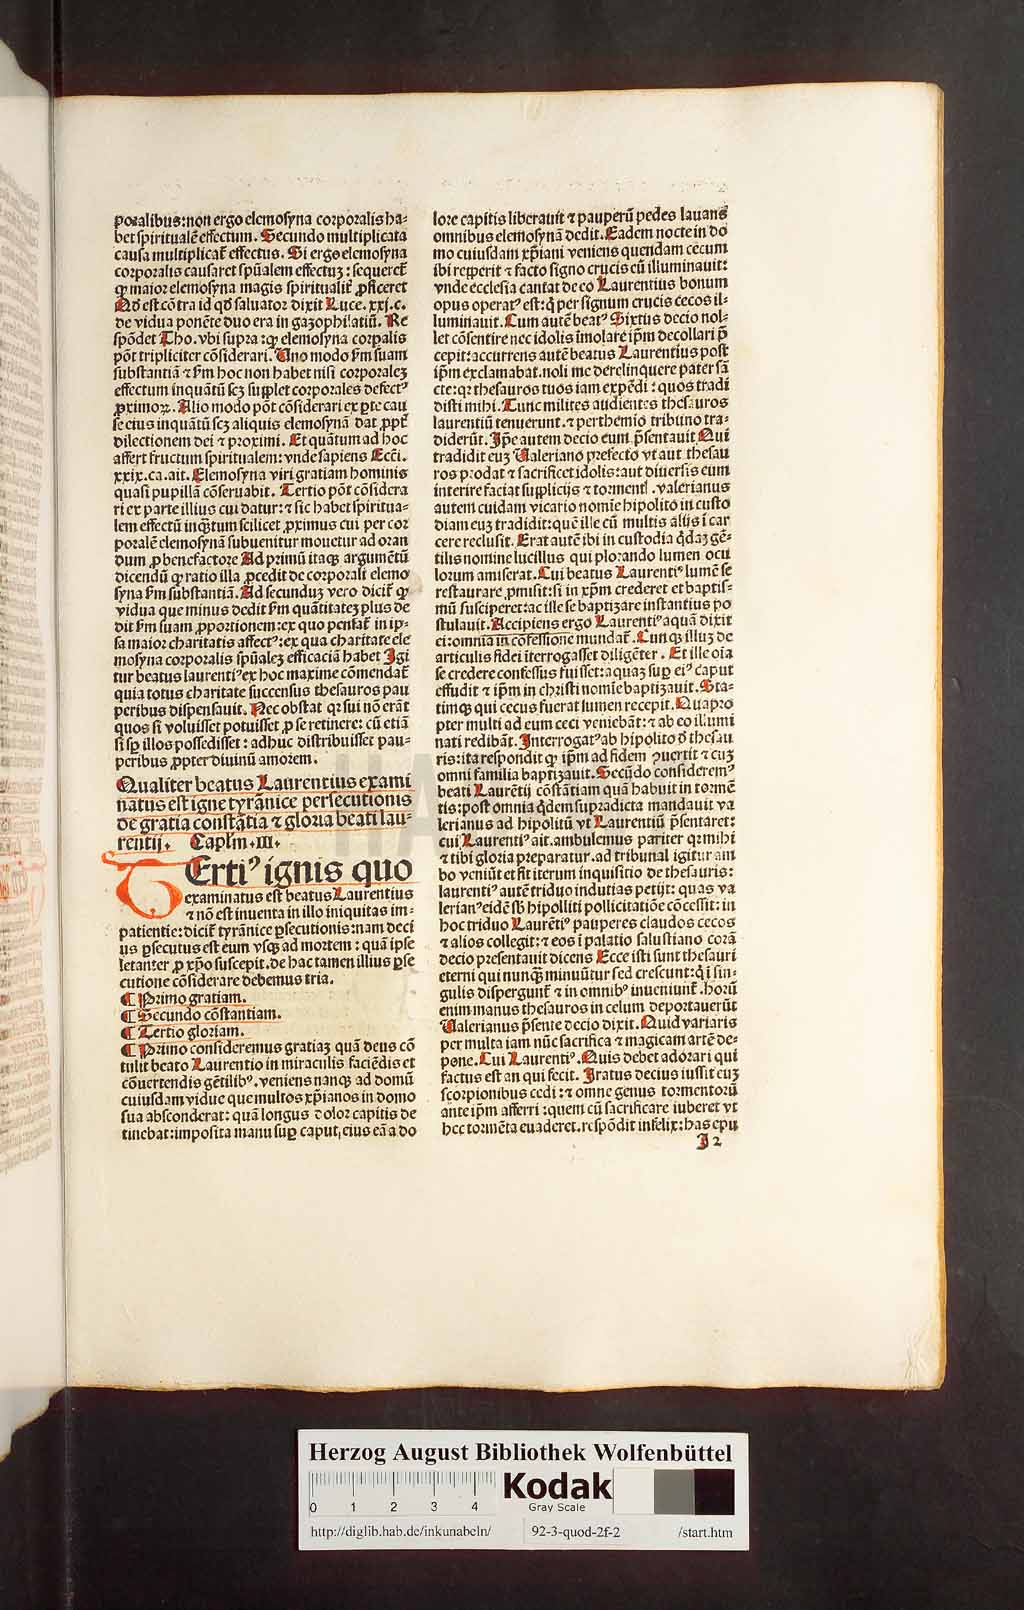 poralibus: non ergo elemosyna corporalis ha⸗
bet spiritualē effectum. Secundo multiplicata
causa multiplicat̄ effectus. Si ergo elemosyna
corporalis causaret spūalem effectuꝫ: sequeret̄
ꝙ maior elemosyna magis spiritualit̄ ꝓficeret
Qđ est cōtra id qđ saluator dixit Luce. xxi. c.
de vidua ponēte duo era in gazophilatiū. Re
spōdet Tho. vbi supra: ꝙ elemosyna corpalis
pōt tripliciter cōsiderari. Uno modo ẜm suam
substantiā ⁊ ẜm hoc non habet nisi corporaleꝫ
effectum inquātū scꝫ supplet corporales defectꝰ
ꝓximoꝝ. Alio modo pōt cōsiderari ex ꝑte cau
se eius inquātū scꝫ aliquis elemosynā dat ꝓpt̄
dilectionem dei ⁊ proximi. Et quātum ad hoc
affert fructum spiritualem: vnde sapiens Ecci.
xxix. ca. ait. Elemosyna viri gratiam hominis
quasi pupillā cōseruabit. Tertio pōt cōsidera
ri ex parte illius cui datur: ⁊ sic habet spiritua⸗
lem effectū inqꝫtum scilicet ꝓximus cui per cor
poralē elemosynā subuenitur mouetur ad oran
dum ꝓ benefactore Ad primū itaqꝫ argumētū
dicendū ꝙ ratio illa ꝓcedit de corporali elemo
syna ẜm substantiā. Ad secunduꝫ vero dicit̄ ꝙ
vidua que minus dedit ẜm quātitateꝫ plus de
dit ẜm suam ꝓportionem: ex quo pensat̄ in ip⸗
sa maior charitatis affectꝰ: ex qua charitate ele
mosyna corporalis spūaleꝫ efficaciā habet Igi
tur beatus laurentiꝰ ex hoc maxime cōmendat̄
quia totus charitate succensus thesauros pau
peribus dispensauit. Nec obstat qꝛ sui nō erāt
quos si voluisset potuisset ꝓ se retinere: cū etiā
si sꝑ illos possedisset: adhuc distribuisset pau⸗
peribus ꝓpter diuinū amorem.
Qualiter beatus Laurentius exami
natus est igne tyrānice persecutionis
de gratia constātia ⁊ gloria beati lau⸗
rentij. Caplm .III.
TErtiꝰ ignis quo
examinatus est beatus Laurentius
⁊ nō est inuenta in illo iniquitas im⸗
patientie: dicit̄ tyrānice ꝑsecutionis: nam deci
us ꝑsecutus est eum vsqꝫ ad mortem: quā ipse
letanter ꝓ xp̄o suscepit. de hac tamen illius ꝑse
cutione cōsiderare debemus tria.
¶ Primo gratiam.
¶ Secundo cōstantiam.
¶ Tertio gloriam.
¶ Primo consideremus gratiaꝫ quā deus cō
tulit beato Laurentio in miraculis faciēdis et
cōuertendis gētilibꝰ. veniens nanqꝫ ad domū
cuiusdam vidue que multos xp̄ianos in domo
sua absconderat: quā longus dolor capitis de
tinebat: imposita manu suꝑ caput, eius eā a do
lore capitis liberauit ⁊ pauperū pedes lauans
omnibus elemosynā dedit. Eadem nocte in do
mo cuiusdam xp̄iani veniens quendam cecum
ibi repperit ⁊ facto signo crucis eū illuminauit:
vnde ecclesia cantat de eo Laurentius bonum
opus operatꝰ est: q̇ per signum crucis cecos il⸗
luminauit. Cum autē beatꝰ Sixtus decio nol⸗
let cōsentire nec idolis imolare ip̄m decollari p̄
cepit: accurrens autē beatus Laurentius post
ip̄m exclamabat. noli me derelinquere pater sā
cte: qꝛ thesauros tuos iam expēdi: quos tradi
disti mihi. Tunc milites audientes thesauros
laurentiū tenuerunt. ⁊ perthemio tribuno tra⸗
diderūt. Ip̄e autem decio eum p̄sentauit Qui
tradidit euꝫ Ualeriano prefecto vt aut thesau
ros prodat ⁊ sacrificet idolis: aut diuersis eum
interire faciat supplicijs ⁊ torment̄. valerianus
autem cuidam vicario nomīe hipolito in custo
diam euꝫ tradidit: quē ille cū multis alijs ī car
cere reclusit. Erat autē ibi in custodia q̇daꝫ gē⸗
tilis nomine lucillus qui plorando lumen ocu
lorum amiserat. Cui beatus Laurentiꝰ lumē se
restaurare ꝓmisit: si in xp̄m crederet et baptis⸗
mū susciperet: ac ille se baptizare instantius po
stulauit. Accipiens ergo Laurentiꝰ aquā dixit
ei: omnia in cōfessione mundat̄. Cunqꝫ illuꝫ de
articulis fidei īterrogasset diligēter. Et ille oīa
se credere confessus fuisset: aquaꝫ suꝑ eiꝰ caput
effudit ⁊ ip̄m in christi nomīe baptizauit. Sta⸗
timqꝫ qui cecus fuerat lumen recepit. Quapro
pter multi ad eum ceci veniebāt: ⁊ ab eo illumi
nati redibāt. Interrogatꝰ ab hipolito d̄ thesau
ris: ita respondit ꝙ ip̄m ad fidem ꝯuertit ⁊ cuꝫ
omni familia baptizauit. Secūdo consideremꝰ
beati Laurētij cōstātiam quā habuit in tormē
tis: post omnia q̇dem supradicta mandauit va
lerianus ad hipolitū vt Laurentiū p̄sentaret:
cui Laurentiꝰ ait. ambulemus pariter qꝛ mihi
⁊ tibi gloria preparatur. ad tribunal igitur am
bo veniūt et fit iterum inquisitio de thesauris:
laurentiꝰ autē triduo indutias petijt: quas va
lerianꝰ eidē sb̄ hipolliti pollicitatiōe cōcessit: in
hoc triduo Laurētiꝰ pauperes claudos cecos
⁊ alios collegit: ⁊ eos ī palatio salustiano corā
decio presentauit dicens Ecce isti sunt thesauri
eterni qui nunqꝫ minuūtur sed crescunt: q̇ ī sin⸗
gulis dispergunt̄ ⁊ in omnibꝰ inueniunt̄. horū
enim manus thesauros in celum deportauerūt
Ualerianus p̄sente decio dixit. Quid variaris
per multa iam nūc sacrifica ⁊ magicam artē de⸗
pone. Cui Laurentiꝰ. Quis debet adorari qui
factus est an qui fecit. Iratus decius iussit euꝫ
scorpionibus cedi: ⁊ omne genus tormentorū
ante ip̄m afferri: quem cū sacrificare iuberet vt
hec tormēta euaderet. respōdit infelix: has epu
I 2
Herzog August Bibliothek Wolfenbüttel
0 1 2 3 4
Kodak
Gray Scale
http://diglib.hab.de/inkunabeln/ 92-3-quod-2f-2 /start.htm